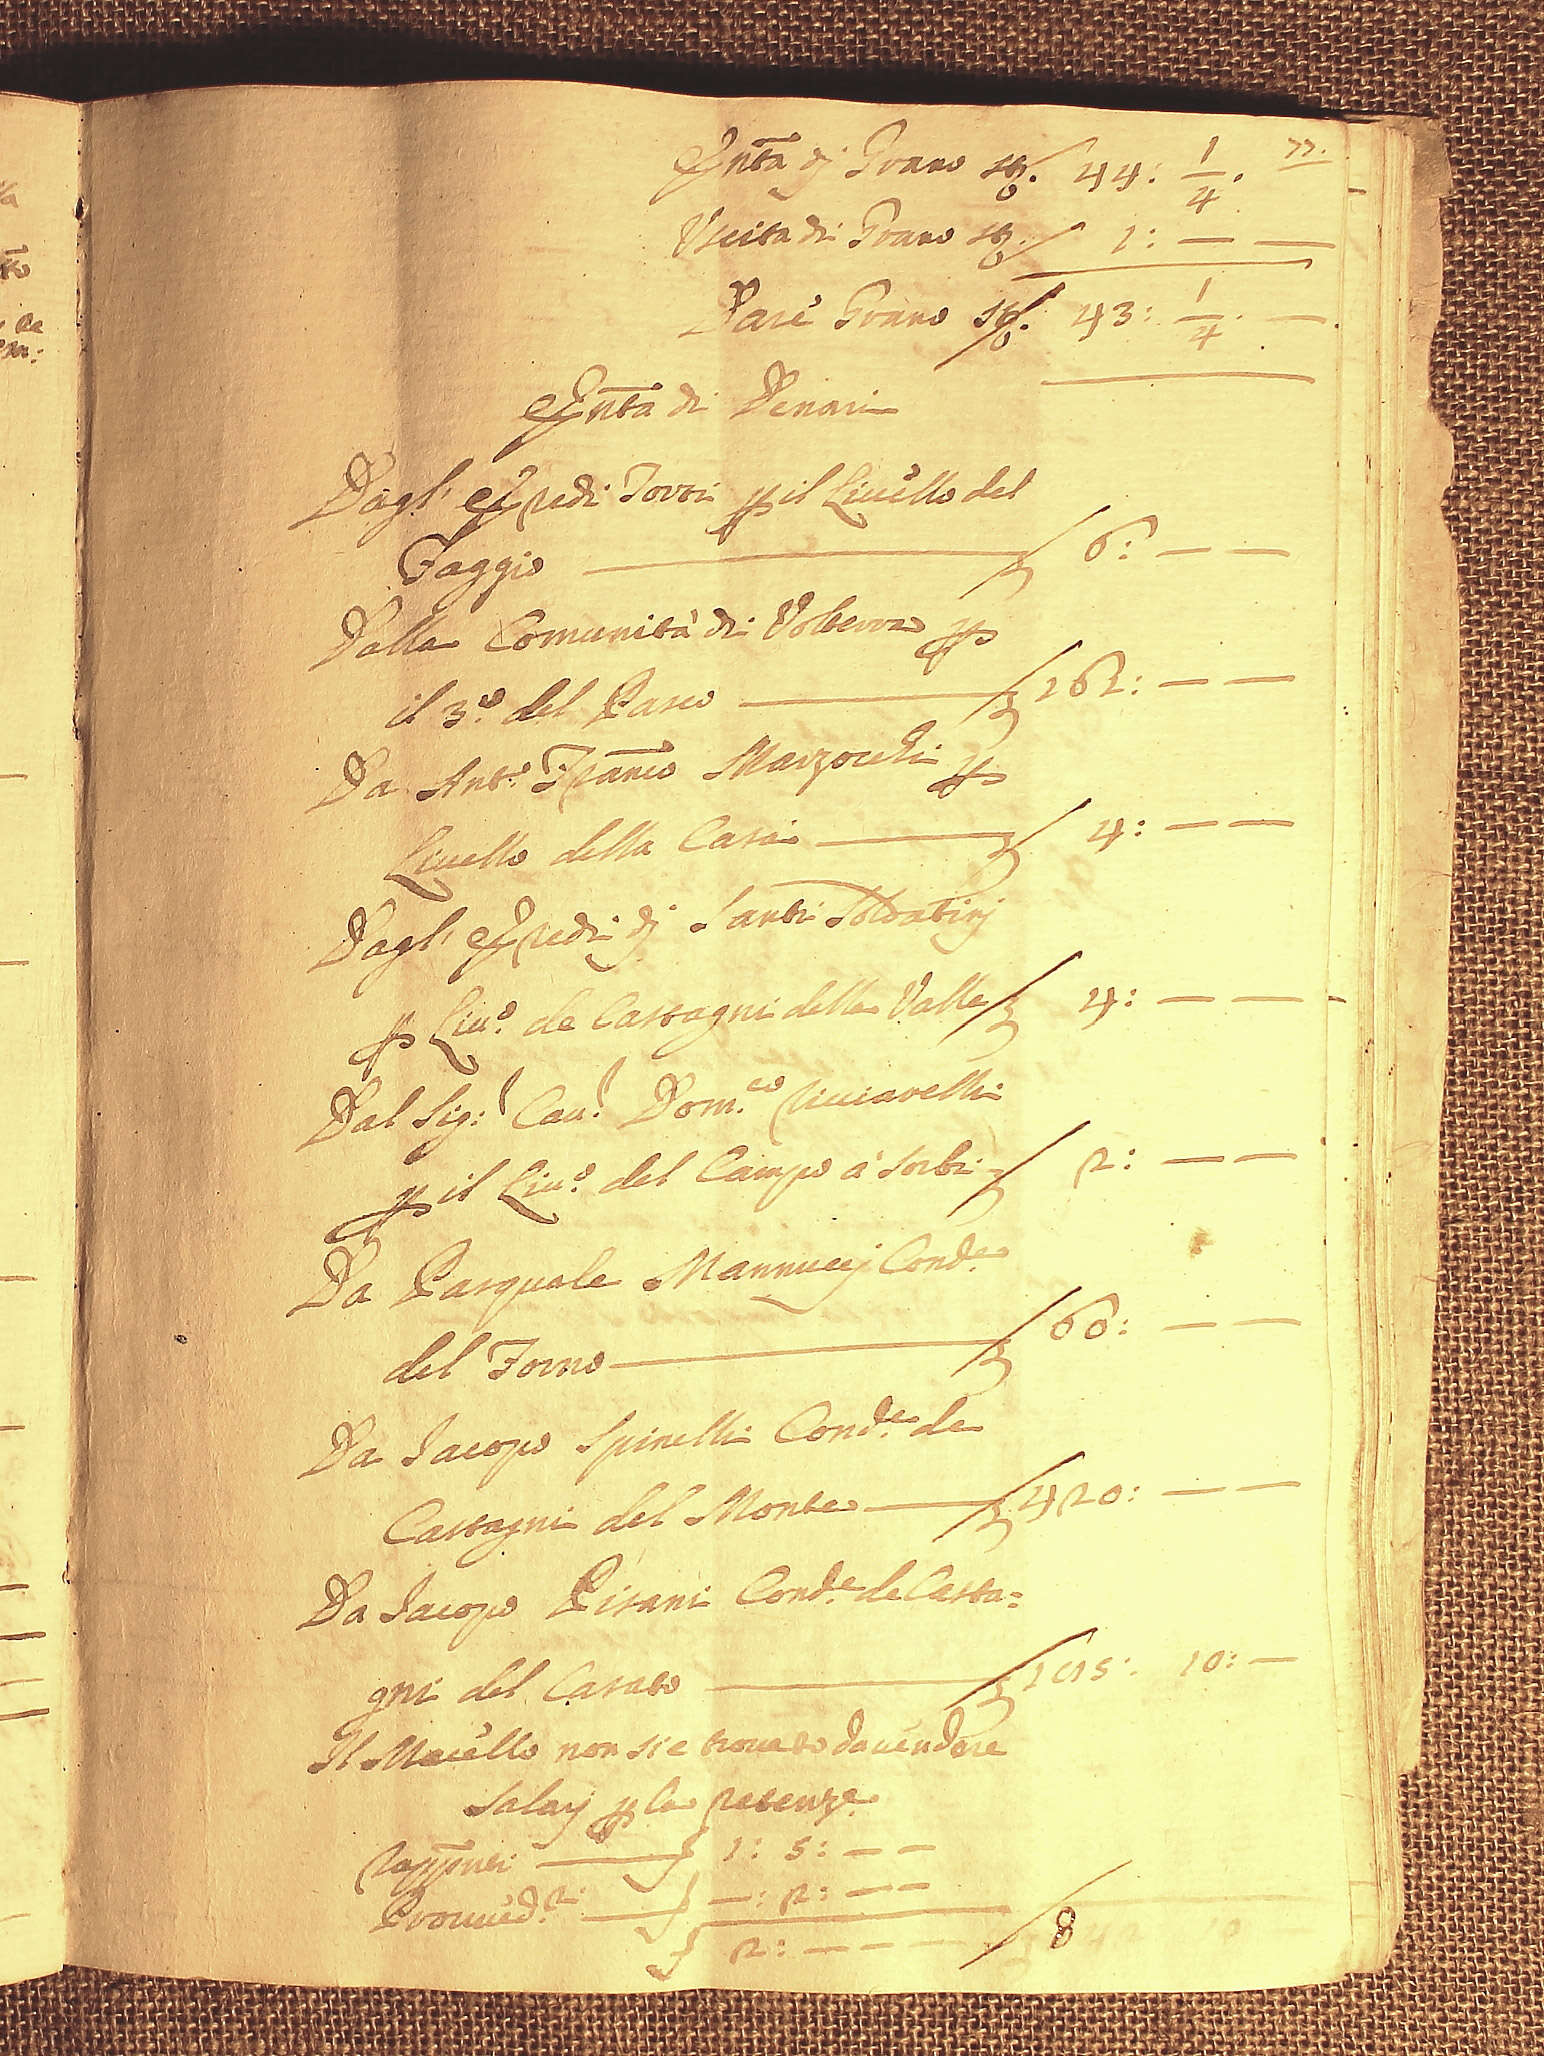 77.
Entta dj Grano stª. 44: 1/4.
Uscita di Grano stª. 1: — —
Dare Grano stª. 43: 1/4. —
Entta di Denari
Dagl' Eredi Torri p il Livello del
Faggio — 6: — —
Dalla Comunità di Volterra p
il 3.º del Pasco — 262: — —
Da Ant.º Franco Marzocchi p
Livello della Casa — 4: — —
Dagl' Eredi dj Santi Soldatinj
p Liv.º de Castagni della Valle 4: — —
Dal Sig:r Cav.r Dom.co Ricciarelli
p il Liv.º del Campo a Sorbi 2: — —
Da Pasquale Mannuccj Cond.e
del Forno — 60: — —
Da Jacopo Spinelli Cond.e de
Castagni del Monte — 420: — —
Da Jacopo Pisani Cond.e de Casta=
gni del Casato — 10: —
Il Macello non si è trovato da vendere
Salarj p la Retenze
Rapprti — 1: 5: — —
Provved.re — —: 2: — —
2: — — — 8